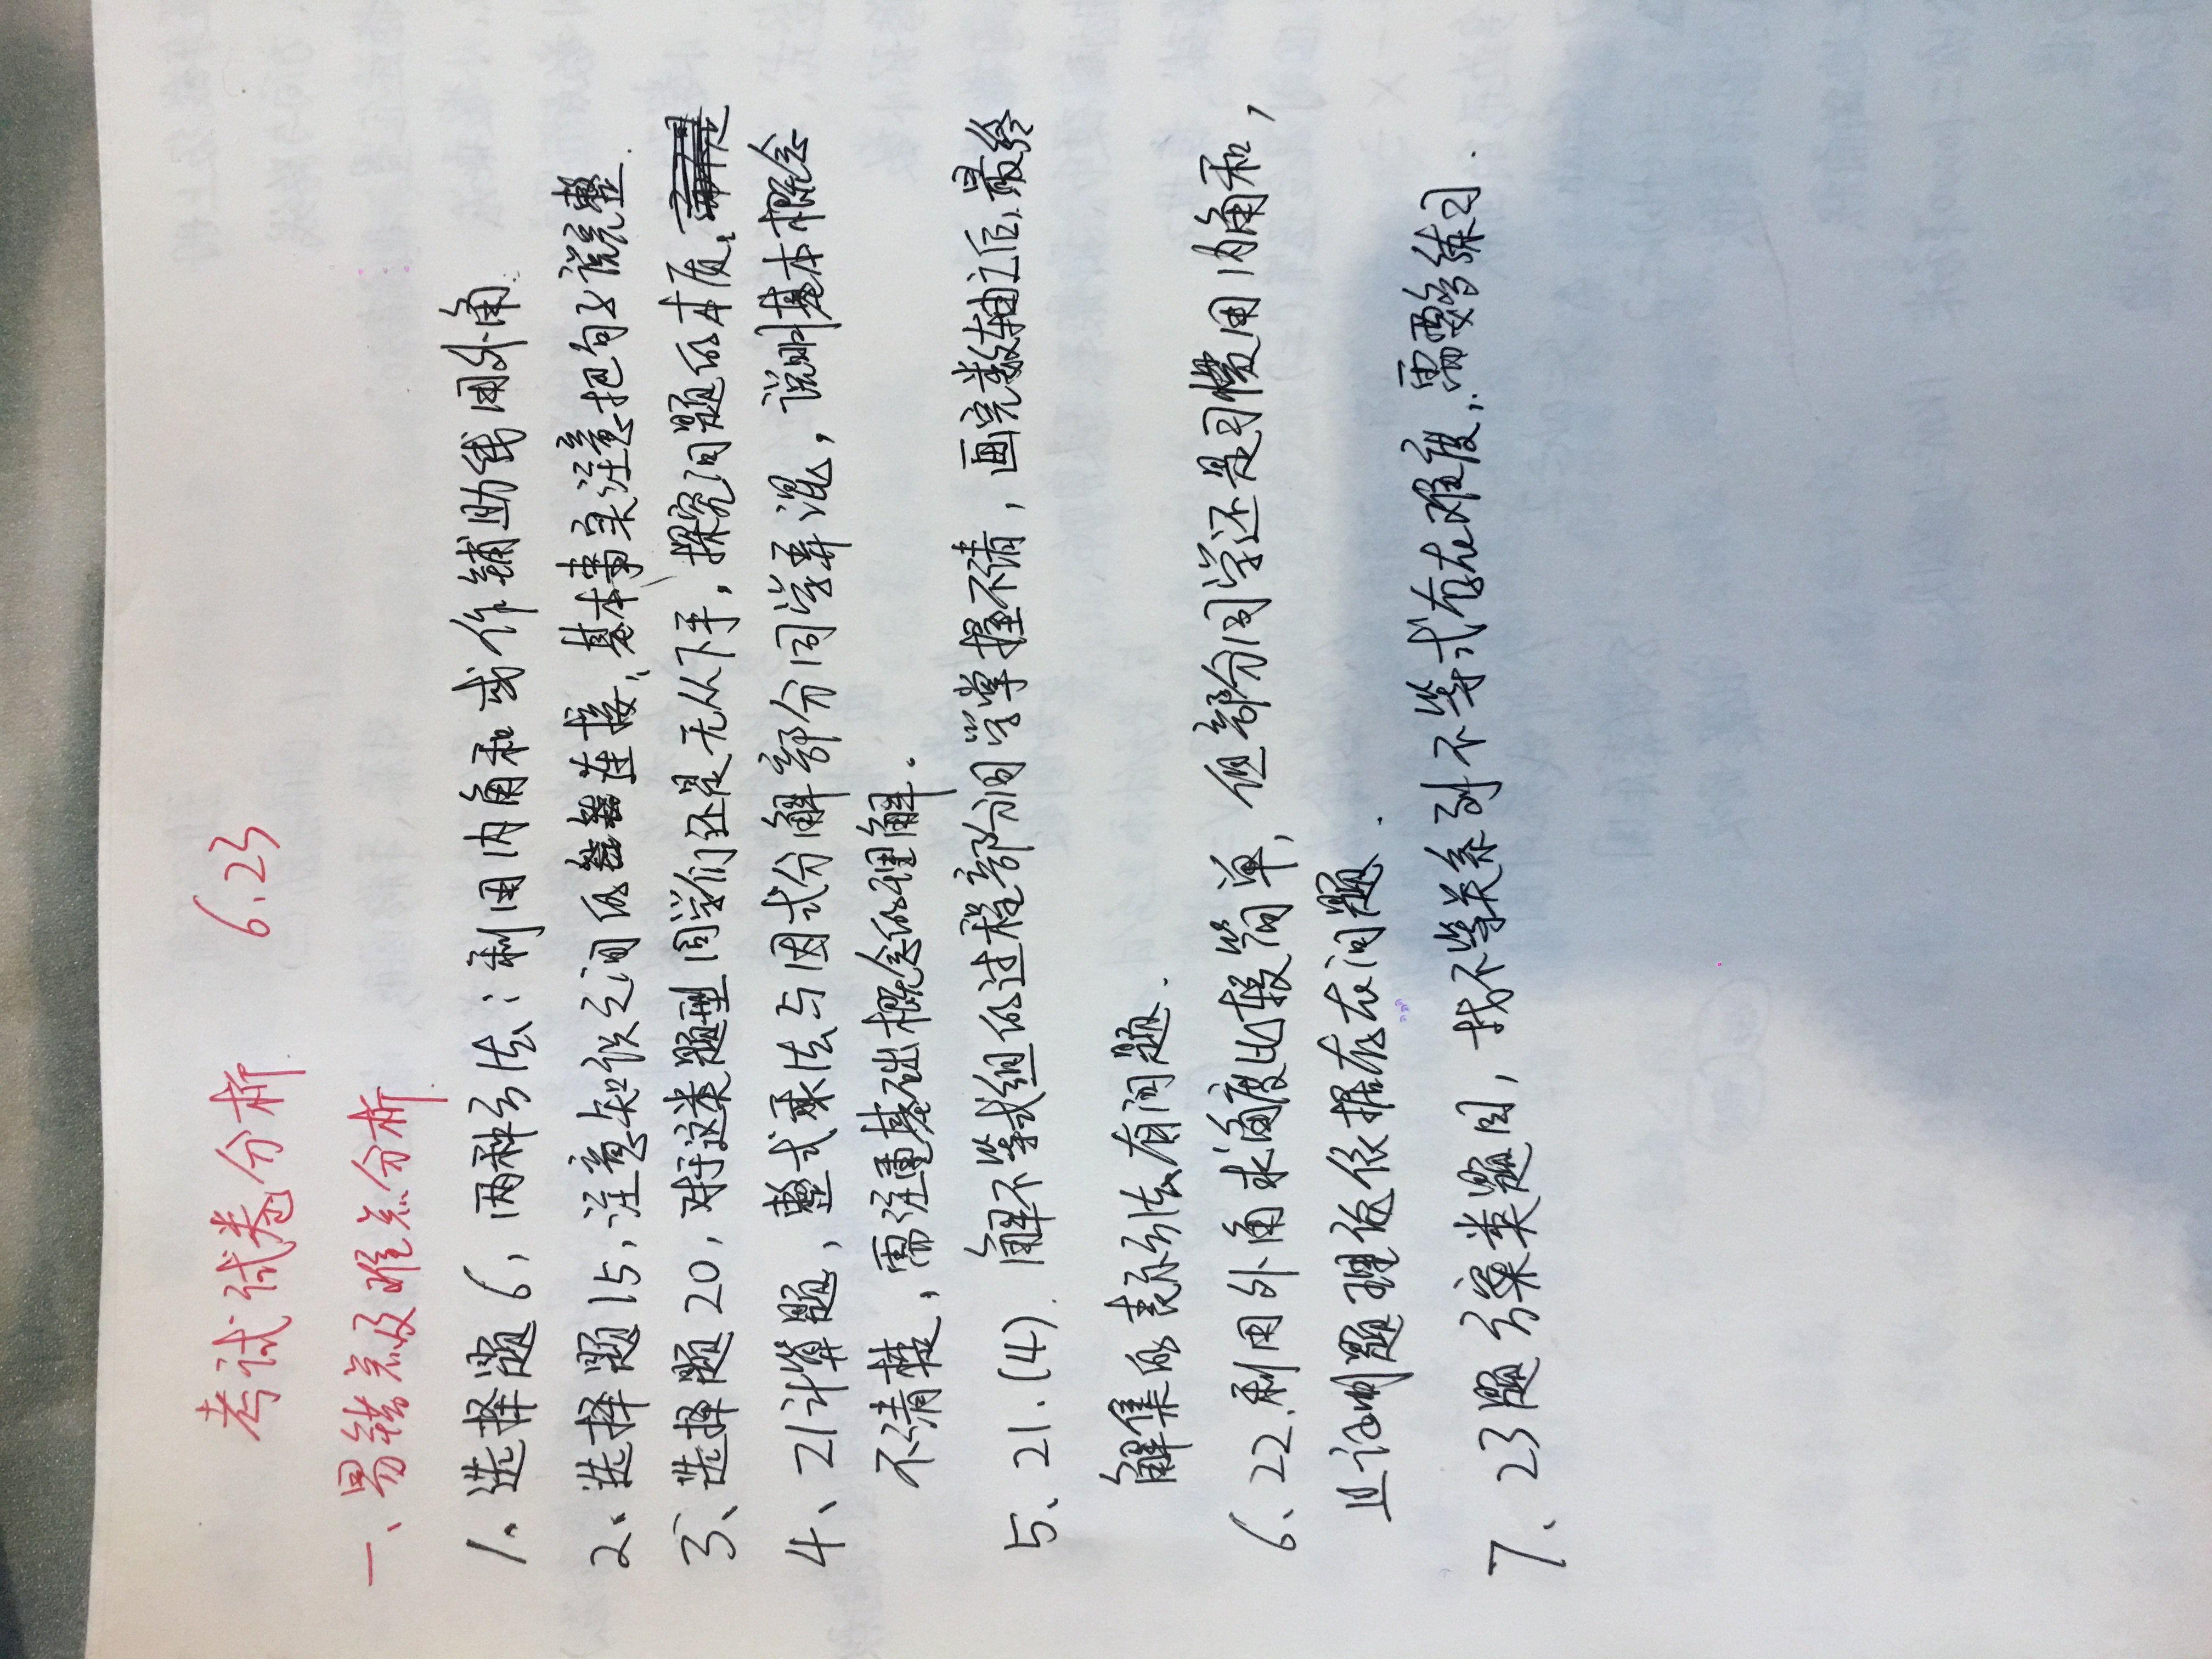 考试试卷分析 6.23
一、易错点及难点分析
1、选择题6,两种方法:利用内角和或作辅助线用外角.
2、选择题15,注意知识之间的连接,基本事实注意把句子说完整.
3、选择题20,对于这类题型同学们还是无从下手,探究问题的本质,
4、21计算题,整式乘法与因式分解部分同学弄混,说明基本概念
不清楚,需注重基础概念的理解.
5、21.(4).解不等式组的过程部分同学掌握不清,画完数轴之后,最终
解集的表示方法有问题.
6、22.利用外角求角度比较简单,但部分同学还是习惯用内角和,
且证明题理论依据存在问题.
7、23题方案类题目,找不等关系列不等式存在难度,需要多练习.